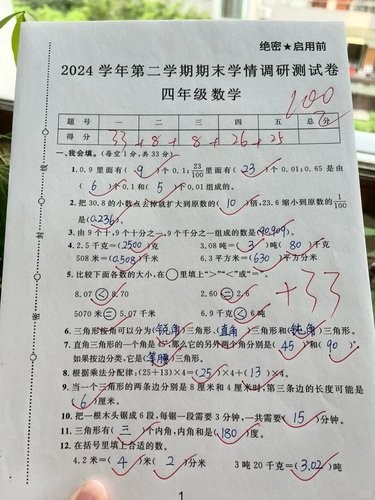 绝密★启用前
2024学年第二学期期末学情调研测试卷
四年级数学
100
题号 一 二 三 四 五 总分
得分 33+8+8+26+25
一、我会填。(每空1分,共33分)
1. 0.9里面有(9)个0.1;23/100里面有(23)个0.01;0.65是由
(6)个0.1和(5)个0.01组成的。
2. 把30.8的小数点去掉就扩大到原数的(10)倍,23.6缩小到原数的1/100
是(0.236)。
3. 由9个十,9个十分之一,9个千分之一组成的数是(90.909)。
4. 2.5千克=(2500)克 3.08吨=(3)吨(80)千克
508米=(0.508)千米 6.3平方米=(630)平方分米
5. 比较下面各数的大小,在○里填上“>”“<”或“=”。
8.07<8.70 2.60=2.6
5070米=5.07千米 6.9千克<6吨
+33
6. 三角形按角可以分为(锐角)三角形、(直角)三角形和(钝角)三角形。
7. 直角三角形的一个角是45°,那么它的另外两个角分别是(45°)和(90°)。
如果按边分类,它是(等腰)三角形。
8. 根据乘法分配律:(25+13)×4=(25)×4+(13)×4。
9. 当一个三角形的两条边分别是8厘米和4厘米时,第三条边的长度可能是
(6)厘米。
10. 把一根木头锯成6段,每锯一段需要3分钟,一共需要(15)分钟。
11. 三角形有(三)个内角,内角和是(180)度。
12. 在括号里填上合适的数。
4.2米=(4)米(2)分米 3吨20千克=(3.02)吨
1
线
封
密